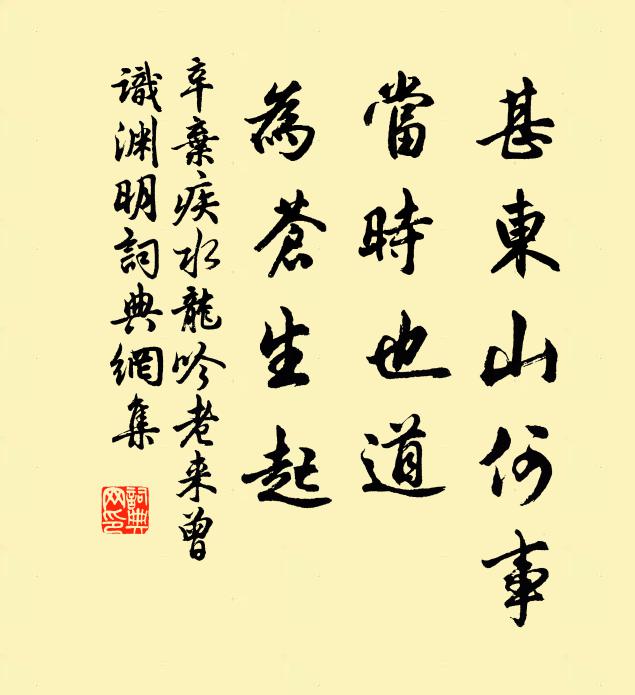 甚東山何事
當時也道
為蒼生起
辛棄疾水龍吟老来曾
識渊明詞典網集
詞典
网印